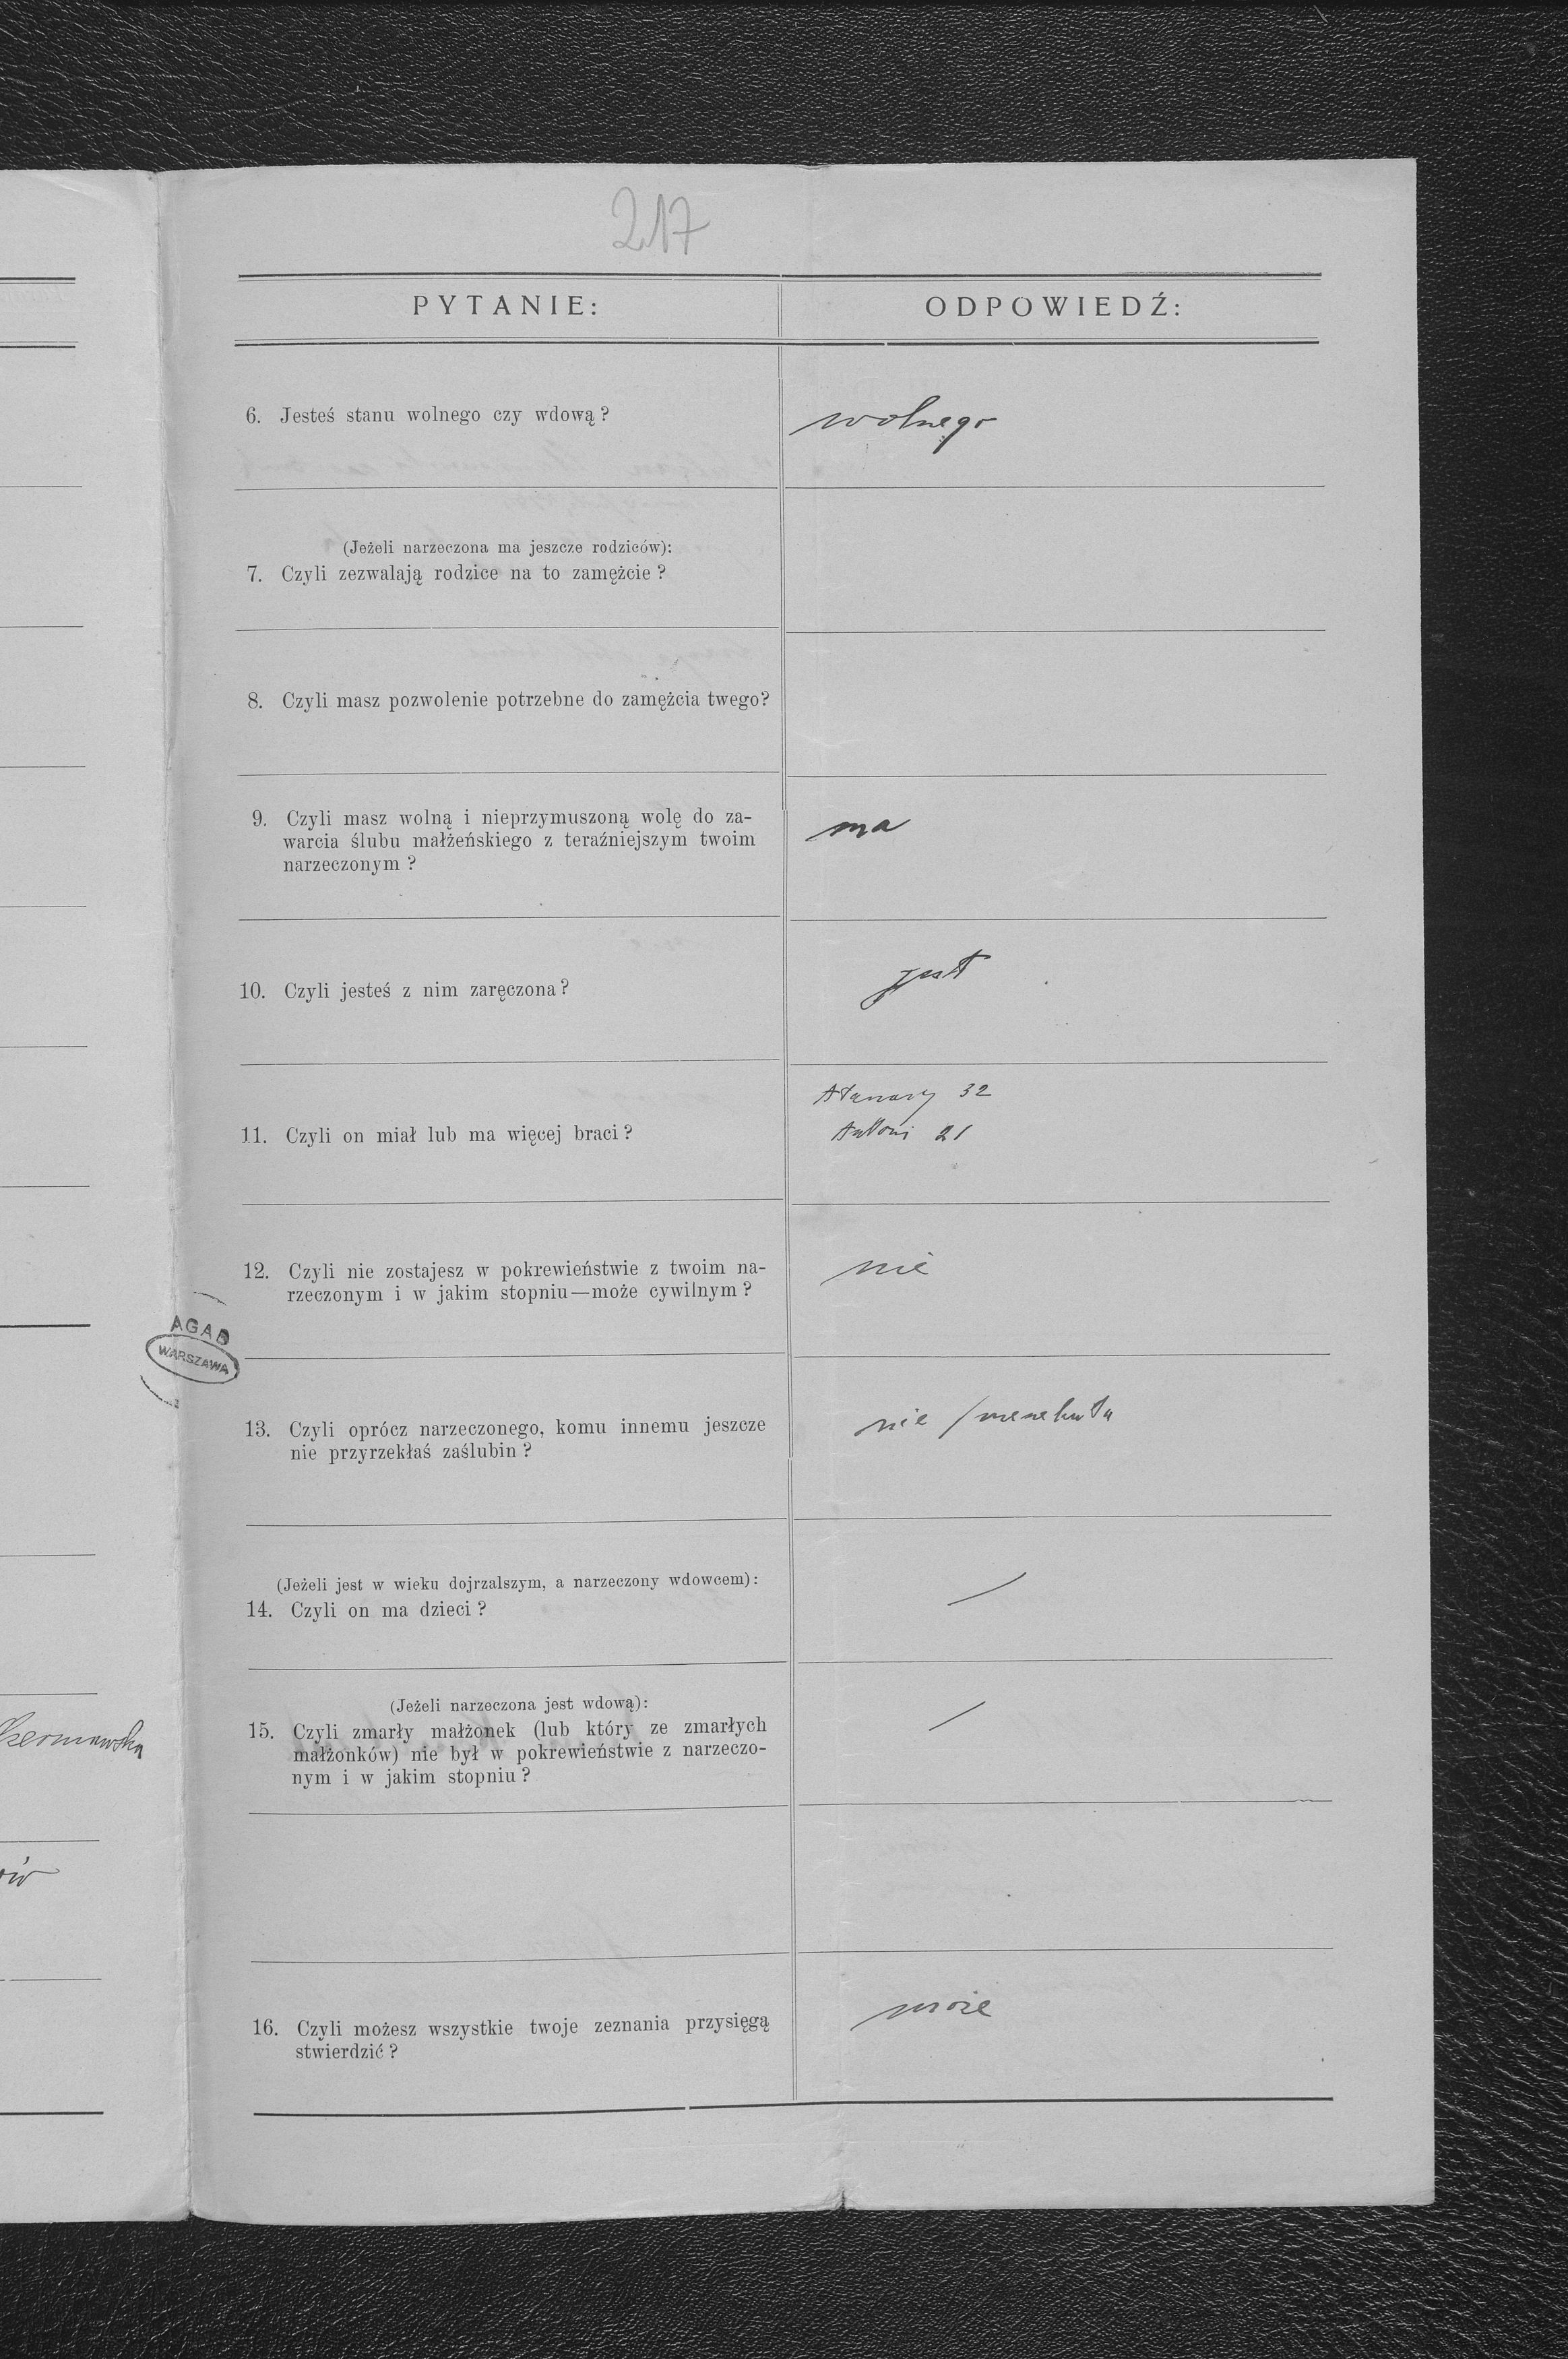 217
PYTANIE:
ODPOWIEDŹ:
6. Jesteś stanu wolnego czy wdową?
wolnego
(Jeżeli narzeczona ma jeszcze rodziców):
7. Czyli zezwalają rodzice na to zamężcie?
8. Czyli masz pozwolenie potrzebne do zamężcia twego?
9. Czyli masz wolną i nieprzymuszoną wolę do za-
warcia ślubu małżeńskiego z teraźniejszym twoim
narzeczonym?
ma
10. Czyli jesteś z nim zaręczona?
jest
11. Czyli on miał lub ma więcej braci?
Atanazy 32
Antoni 21
12. Czyli nie zostajesz w pokrewieństwie z twoim na-
rzeczonym i w jakim stopniu—może cywilnym?
nie
AGAD
WARSZAWA
13. Czyli oprócz narzeczonego, komu innemu jeszcze
nie przyrzekłaś zaślubin?
nie
(Jeżeli jest w wieku dojrzalszym, a narzeczony wdowcem):
14. Czyli on ma dzieci?
/
(Jeżeli narzeczona jest wdową):
15. Czyli zmarły małżonek (lub który ze zmarłych
małżonków) nie był w pokrewieństwie z narzeczo-
nym i w jakim stopniu?
/
16. Czyli możesz wszystkie twoje zeznania przysięgą
stwierdzić?
może